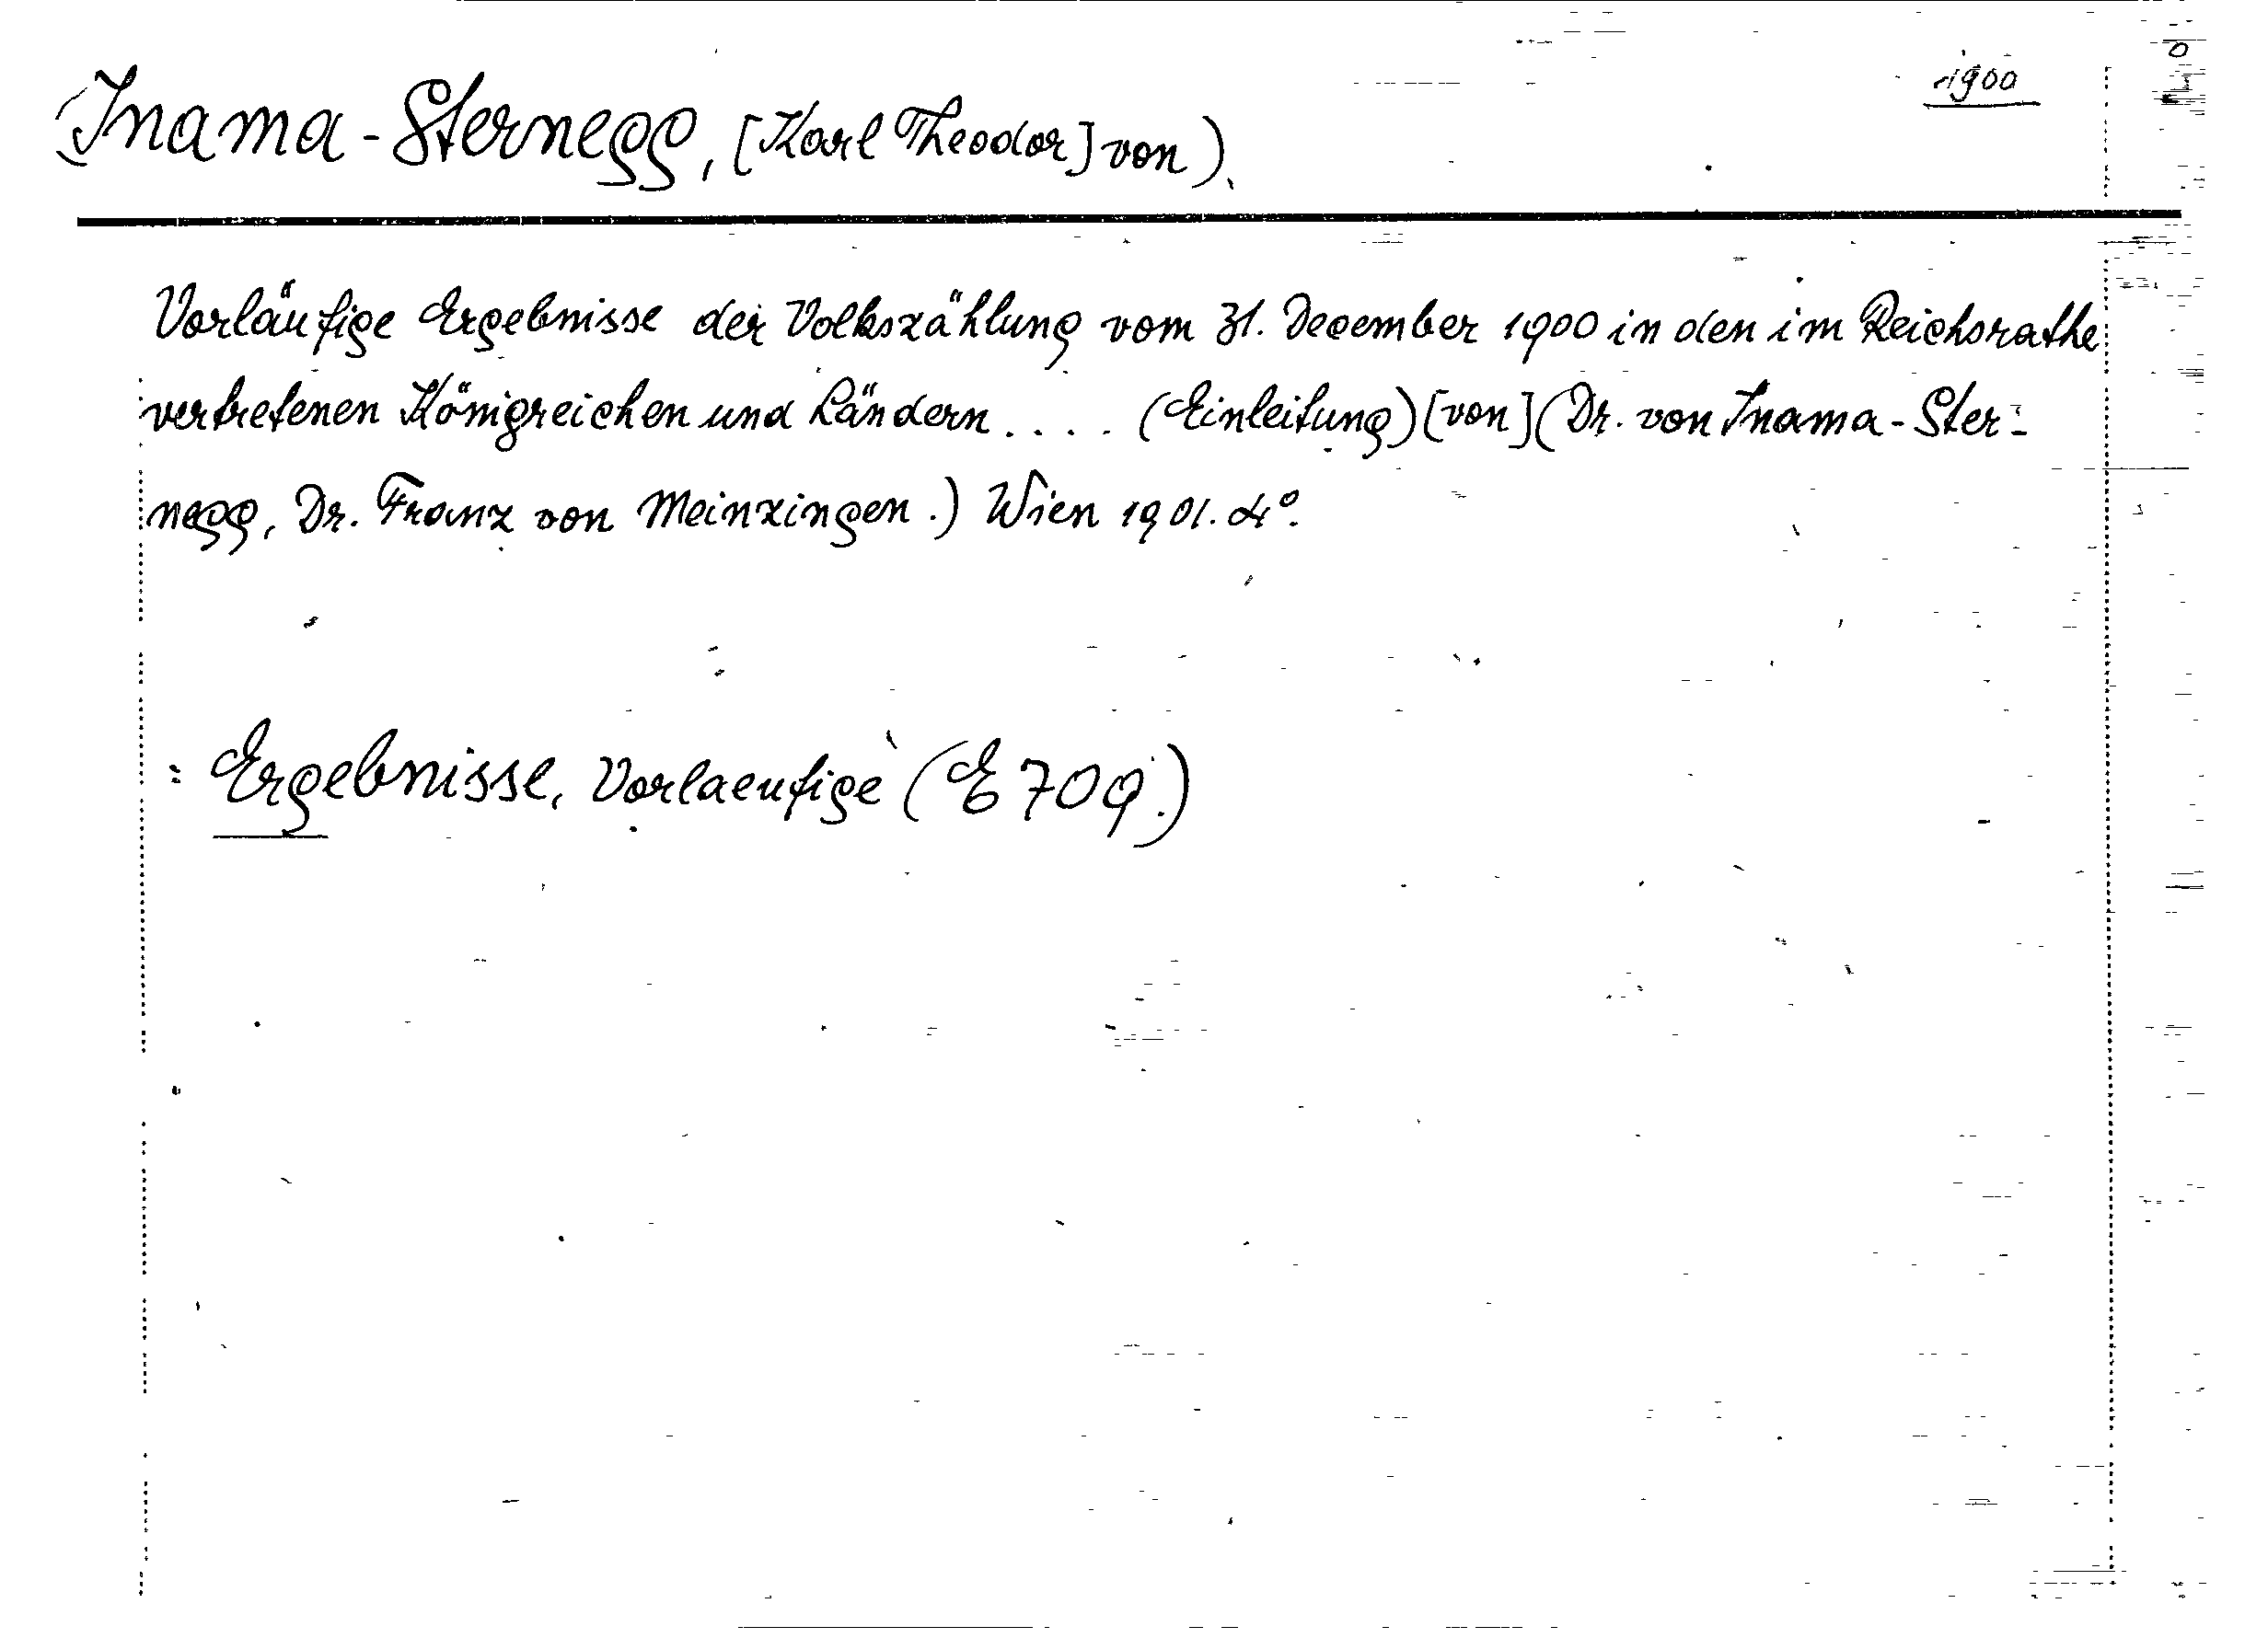 1900
(Inama-Sternegg, [Karl Theodor] von).
Vorläufige Ergebnisse der Volkszählung vom 31. December 1900 in den im Reichsrathe
vertretenen Königreichen und Ländern.... (Einleitung) [von] (Dr. von Inama-Ster-
negg, Dr. Franz von Meinzingen.) Wien 1901. 4°.
= Ergebnisse, Vorlaeufige (E 709.)